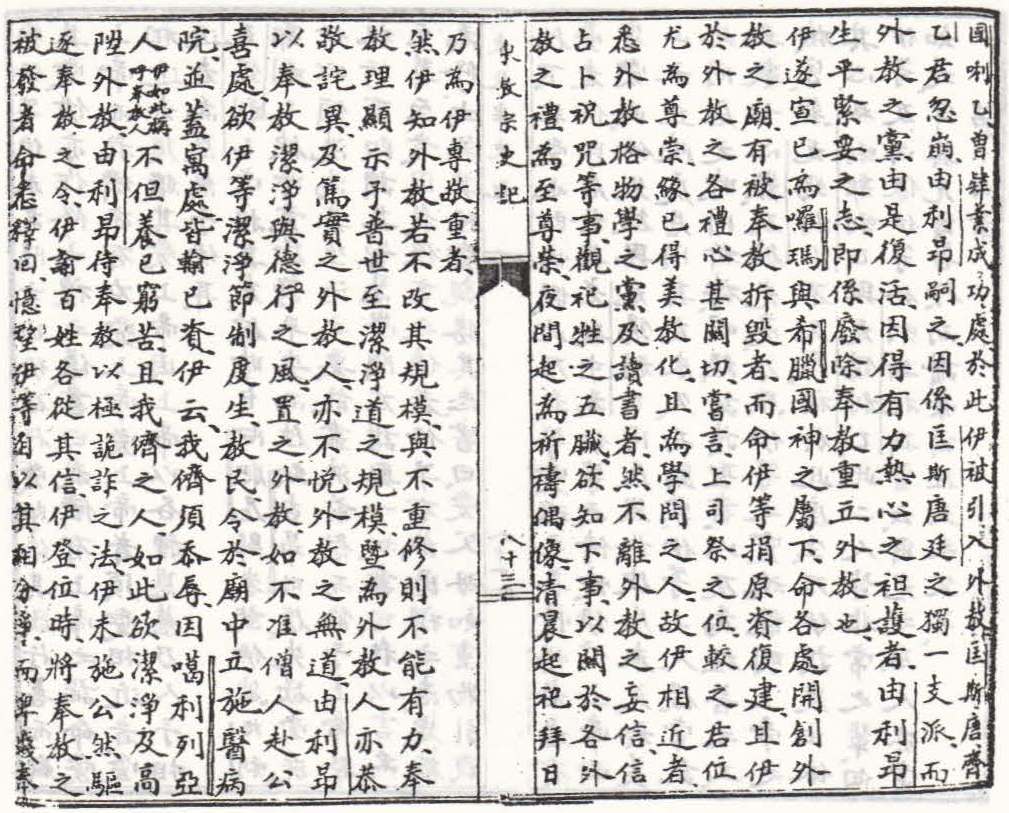 國咧乙曾肄業成功處於此伊被引入外教匡斯唐齊
乙君忽崩由利昂嗣之因係匡斯唐廷之獨一支派而
外教之黨由是復活因得有力熱心之袒護者由利昂
生平緊要之志即係廢除奉教重立外教也
伊遂宣已為囉瑪與希臘國神之屬下命各處開創外
教之廟有被奉教拆毀者而命伊等捐原資復建且伊
於外教之各禮心甚關切嘗言上司祭之位較之君位
尤為尊崇緣已得美教化且為學問之人故伊相近者
悉外教格物學之黨及讀書者然不離外教之妄信信
占卜祝咒等事觀祀牲之五臟欲知下事以關於各外
教之禮為至尊榮夜間起為祈禱偶像清晨起祀拜日
東教宗史記
八十三
乃為伊專敬重者
然伊知外教若不改其規模與不重修則不能有力奉
教理顯示于普世至潔淨道之規模暨為外教人亦恭
敬詫異及篤實之外教人亦不悅外教之無道由利昂
以奉教潔淨與德行之風置之外教如不准僧人赴公
喜處欲伊等潔淨節制度生教民令於廟中立施醫病
院並蓋寓處皆輸已資伊云我儕須忝辱因噶利列亞
人伊如此稱呼奉教人不但養已窮苦且我儕之人如此欲潔淨及高
陞外教由利昂待奉教以極詭詐之法伊未施公然驅
逐奉教之令伊諭百姓各從其信伊登位時將奉教之
被發者命悉釋回憶望伊等因以其相分爭而卑衰奉